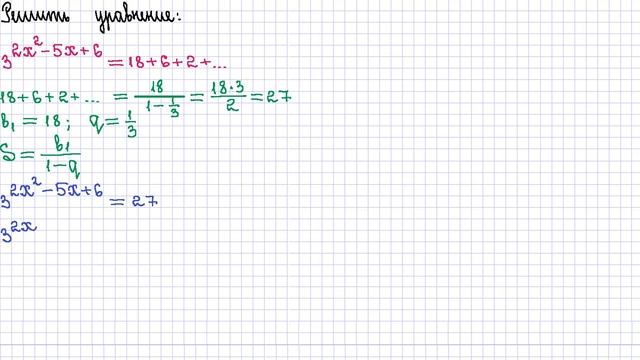 Решить уравнение:
3^{2x^2-5x+6} = 18+6+2+...
18+6+2+... = \frac{18}{1-\frac{1}{3}} = \frac{18·3}{2} = 27
b₁ = 18; q = \frac{1}{3}
S = \frac{b₁}{1-q}
3^{2x^2-5x+6} = 27
3^{2x}